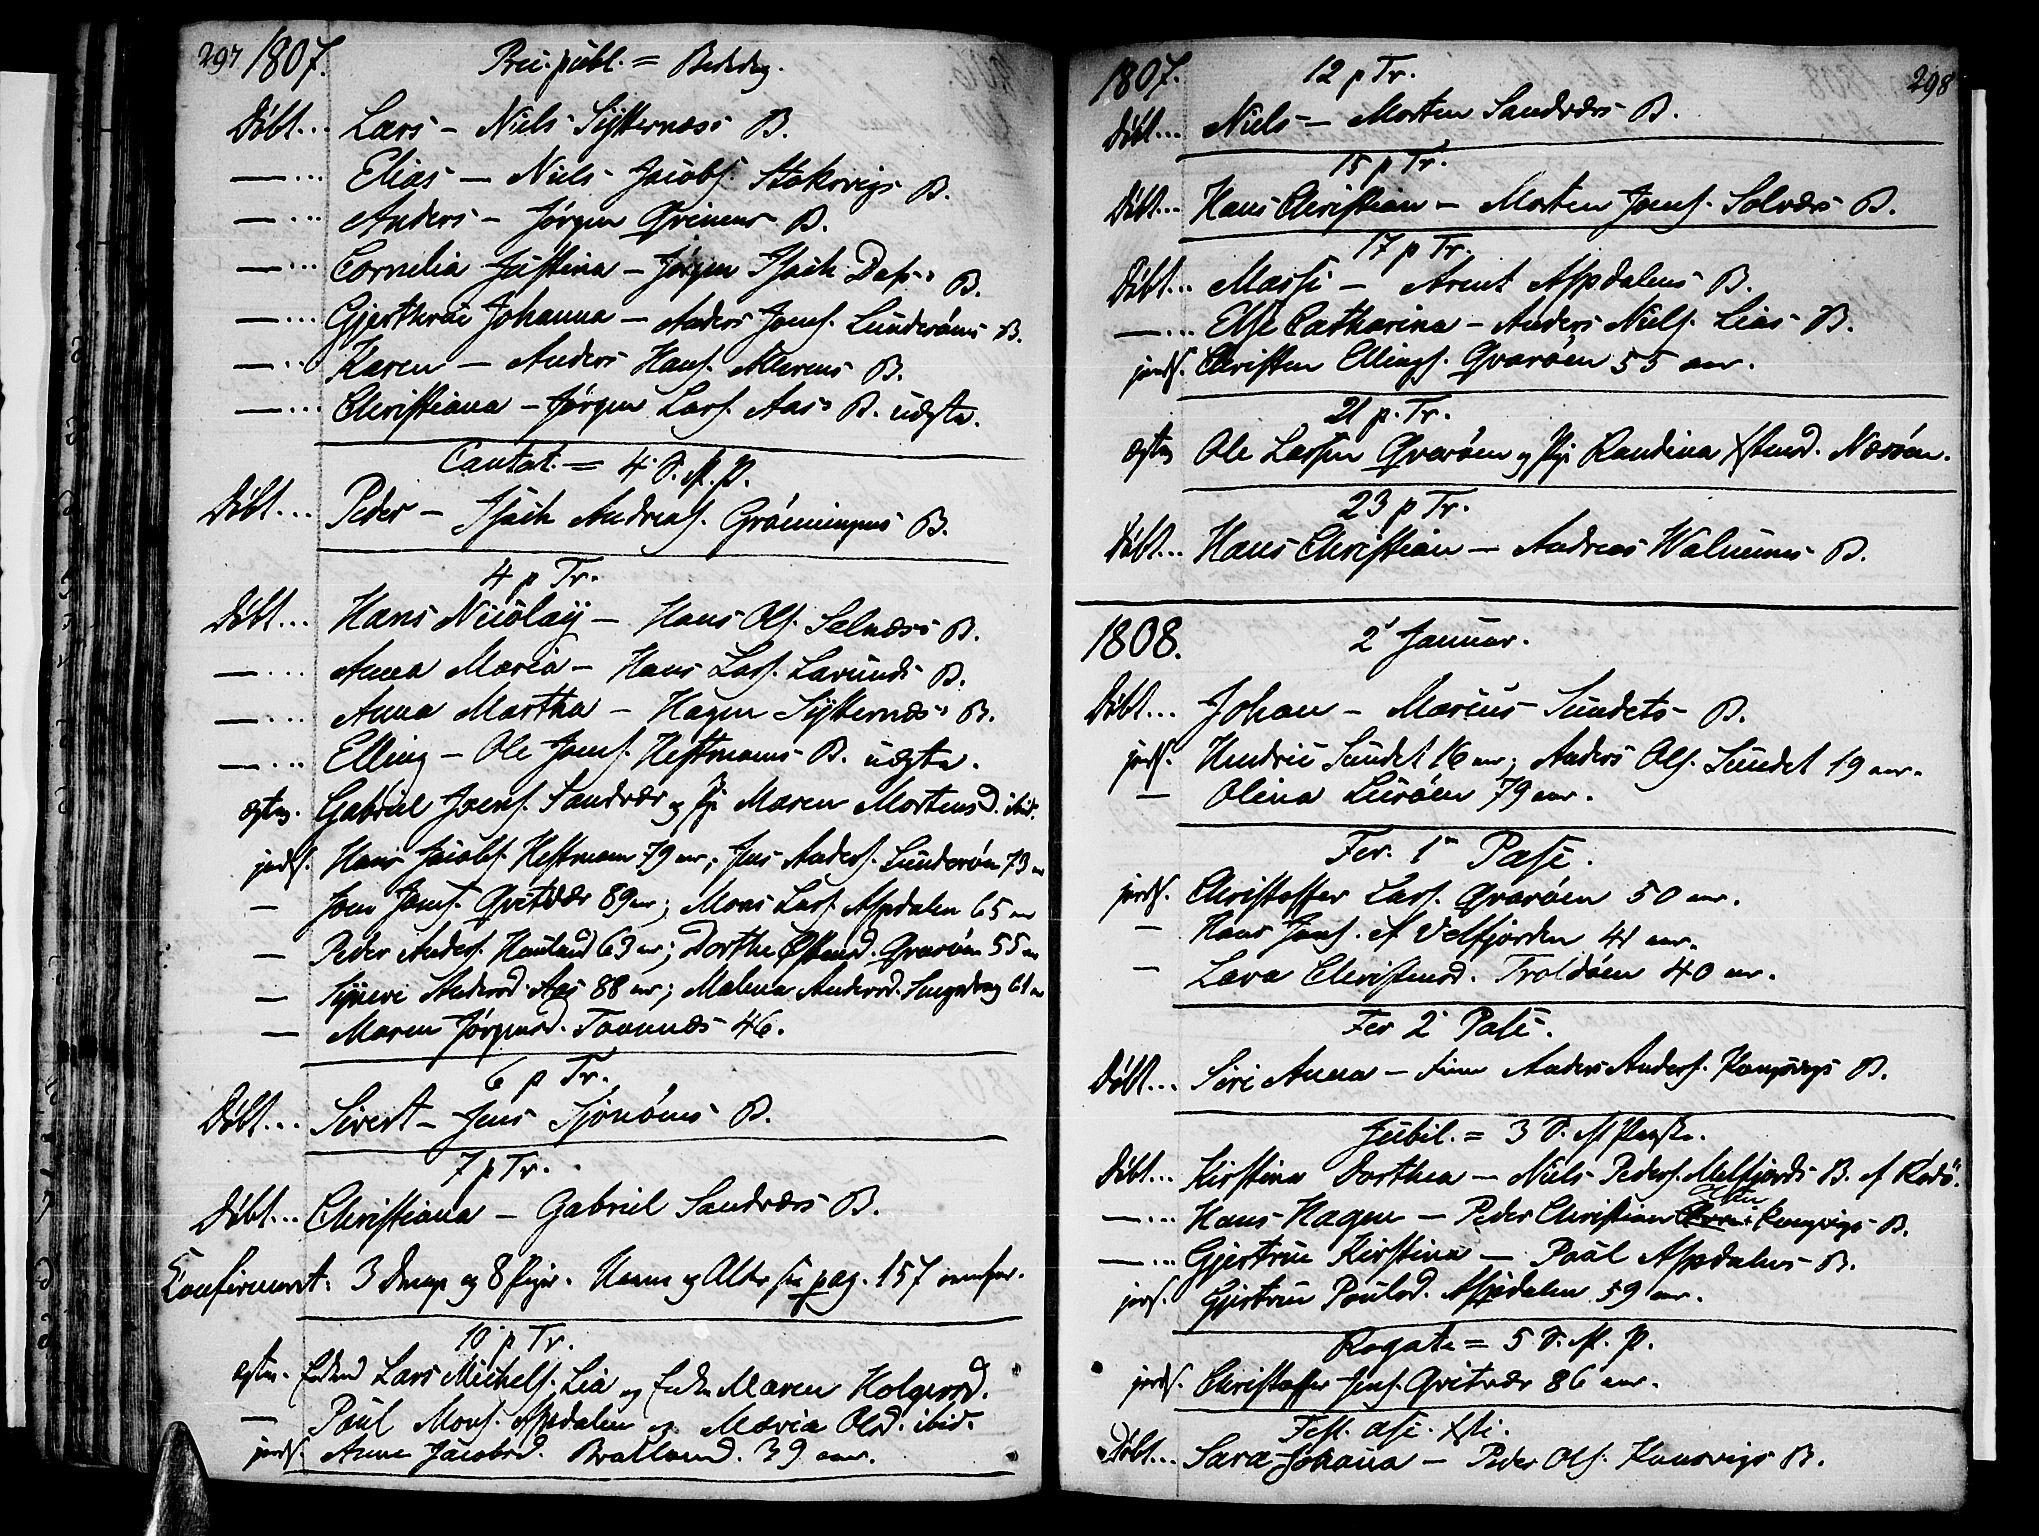 297 1807. Prec. publ. = Bededag.
Døbt... Lars – Niels Sÿtternæss B.
— ... Elias – Niels Jacobs. Stokvigs B.
— ... Anders – Jørgen Qvinens B.
— ... Cornelia Justina – Jørgen Isach Dass's B.
— ... Gjerthrue Johanna – Anders Jons. Lunderøens B.
— ... Karen – Anders Hans. Alderens B.
— ... Christiana – Jørgen Lars. Aas's B. uægte.
Cantat. = 4 S. A. P.
Døbt... Peder – Isach Andreas. Grønningens B.
4 p Tr.
Døbt... Hans Nicolaÿ – Hans Ols. Selnæss B.
— ... Anna Maria – Hans Lars. Lovunds B.
— ... Anna Martha – Hagen Sÿtternæss B.
— ... Elling – Ole Jons. Hestmans B. uægte.
ægtev. Gabriel Joens. Sandvær og Pige Maren Mortensd. ibid.
jords. Hans Jacobs. Hestmann 79 aar; Jens Anders. Lunderøen 73 aar
— Joen Jons. Qvitvær 89 aar; Mons Lars. Aspdalen 65 aar
— Peder Anders. Hauland 63 aar; Dorthe Østensd. Qvarøen 55 aar
— Sÿnevi Andersd. Aas 88 aar; Malena Andersd. 61 aar
— Maren Jørgensd. Tonnæs 46.
6 p Tr.
Døbt... Sivert – Jens Sjonøens B.
7 p Tr.
Døbt... Christiana – Gabriel Sandværs B.
Confirmeret. 3 Drenge og 8 Piger. Navne og Alder see pag. 157 ovenfor.
10 p Tr.
ægtev. Enkemd Lars Michels. Lia og Enken Maren Holgersd.
— Paul Mons. Aspdalen og Maria Olsd. ibid.
jords. Anne Jacobsd. Bratland. 39 aar.
1807. 12 p Tr. 298
Døbt... Niels – Morten Sandværs B.
15 p Tr.
Døbt... Hans Christian – Morten Jons. Solværs B.
17 p Tr.
Døbt... Massi – Arent Aspdalens B.
— ... Else Catharina – Anders Niels. Lias B.
jords. Christen Ellings. Qvarøen 55 aar.
21 p. Tr.
ægtev Ole Larsen Qvarøen og Pige Randina Xstensd. Næsøen.
23 p Tr.
Døbt... Hans Christian – Andreas Walnums B.
1808. 2' Januar.
Døbt... Johan – Marius Sundets B.
jords. Hendric Sundet 16 aar; Anders Ols. Sundet 19 aar.
— Olina Lurøen 79 aar.
Fer. 1 Pasc.
jords. Christoffer Lars. Qvarøen 50 aar.
— Hans Jons. af Velfjorden 41 aar.
— Lava Christensd. Troldøen 40 aar.
Fer 2 Pasc.
Døbt... Siri Anna – Finn Anders Anders. Kongsvigs B.
Jubil. = 3 S. Af Paaske.
Døbt... Kirstina Dorthea – Niels Peders. Melfjords B. af Rødø.
— ... Hans Hagen – Peder Christian Kongsvigs B.
— ... Gjertrue Kirstina – Paul Aspdalens B.
jords. Gjertrue Paulsd. Aspdalen 59 aar.
Rogate = 5 S. A. P.
jords. Christoffer Jens. Qvitvær 86 aar.
Fest. asc. Xsti.
Døbt... Sara Johana – Peder Ols. Konsvigs B.